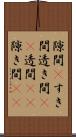 隙間 すき
間 透き間
透間
隙き間